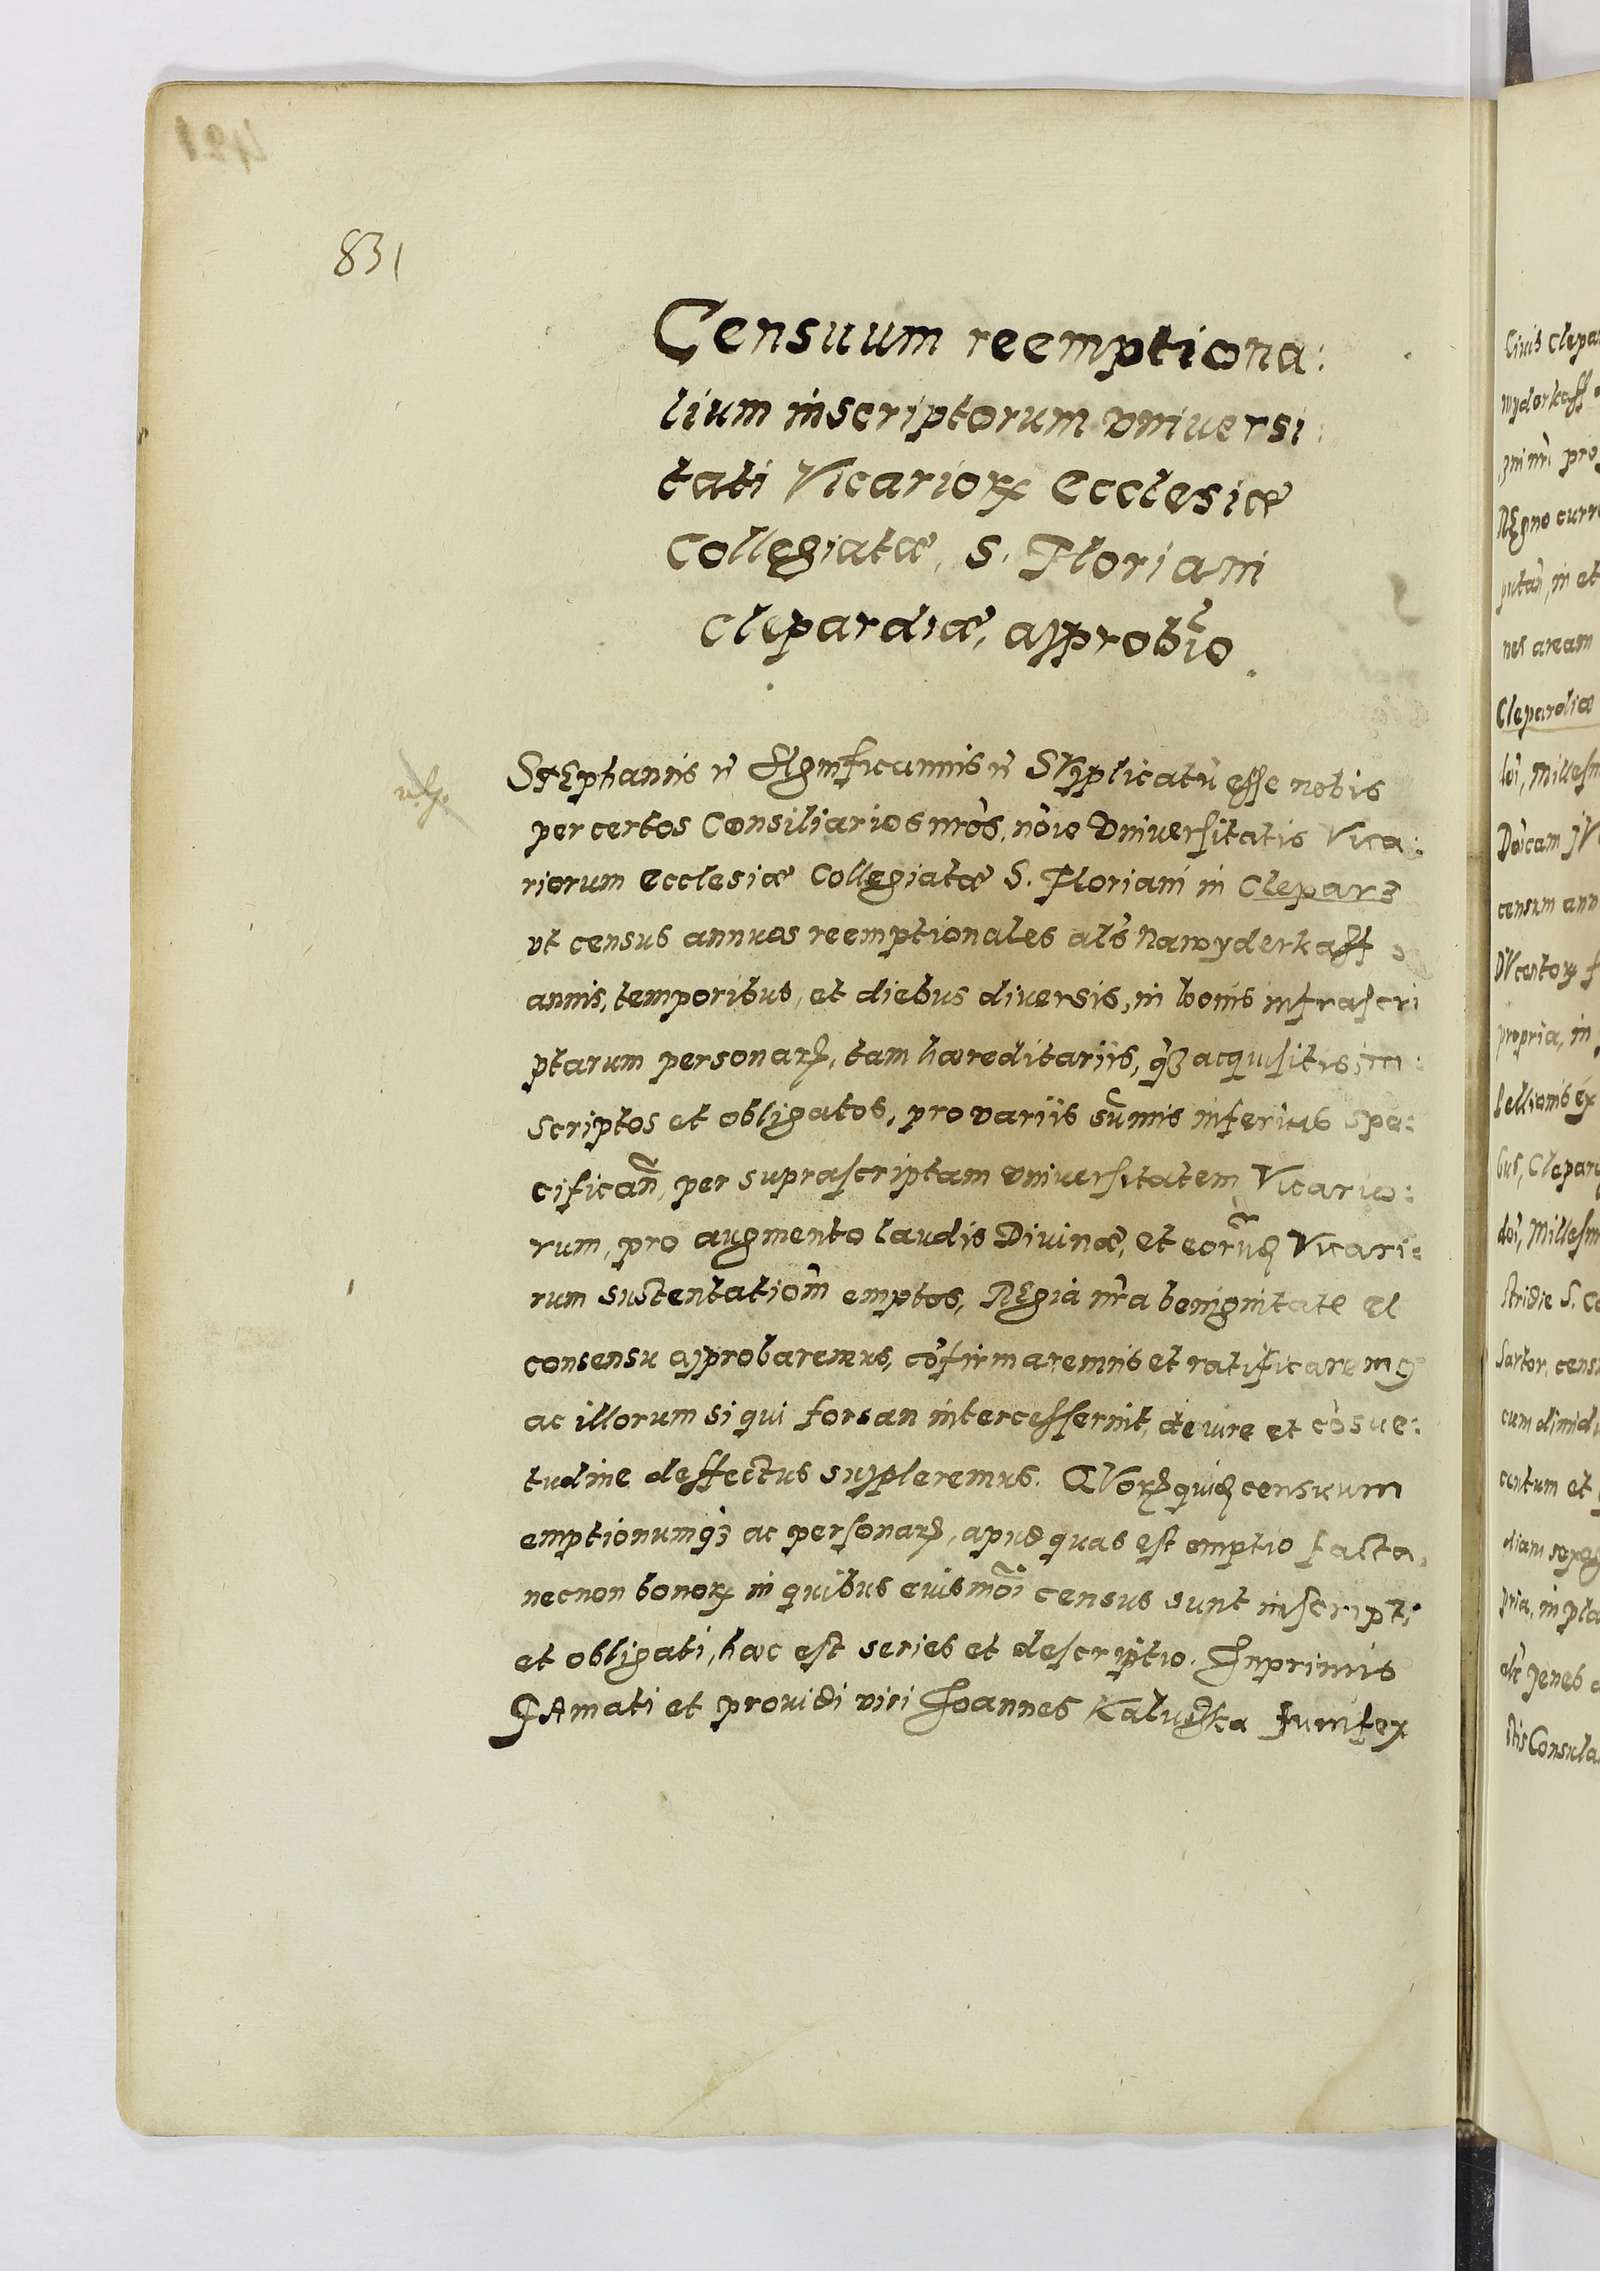 831
Censuum reemptiona:
lium inscriptorum vniuersi:
tati Vicarioꝝ Ecclesiæ
Collegiatæ, S. Floriani
Clepardiæ, approbĩo.
STEphanus ꝛc̃ SIgnificamus ꝛc̃ SVpplicatũ esse nobis
per certos Consiliarios nr̃os, nõie Vniuersitatis Vica:
riorum Ecclesiæ Collegiatæ S. Floriani in Clepar3
vt census annuos reemptionales als̃ nawyderkaff
annis, temporibus, et diebus diuersis, in bonis infrascri
ptarum personarꝝ, tam hæreditariis, q̃3 acquisitis in:
scriptos et obligatos, pro variis sum̃is inferius spe:
cifican̄, per suprascriptam vniuersitatem Vicario:
rum, pro augmento laudis Diuinæ, et eorũdꝫ Vicari:
rum sustentatiom̃ emptos, REgia nr̃a benignitate et
consensu approbaremus, cõfirmaremus et ratificaremꝰ
ac illorum si qui forsan intercesserint, de iure et cõsue:
tudine deffectus suppleremus. QVorꝝquidꝫ censuum
emptionumq3 ac personarꝝ, apud quas est emptio facta,
necnon bonoꝝ in quibus euismõi census sunt inscripti
et obligati, hæc est series et descriptio. Inprimis
FAmati et prouidi viri Joannes Kaluszka funifex
Ciuis Clepar
wyderkaff
pro
REgno curre
putan̄, in et
nes aream
Clepardiæ
Millesm
censum ann
propria, in
Clepar
Millesm
stridie S.
Sartor, censu
cum dimid
centum et
pria, in pla
Consula